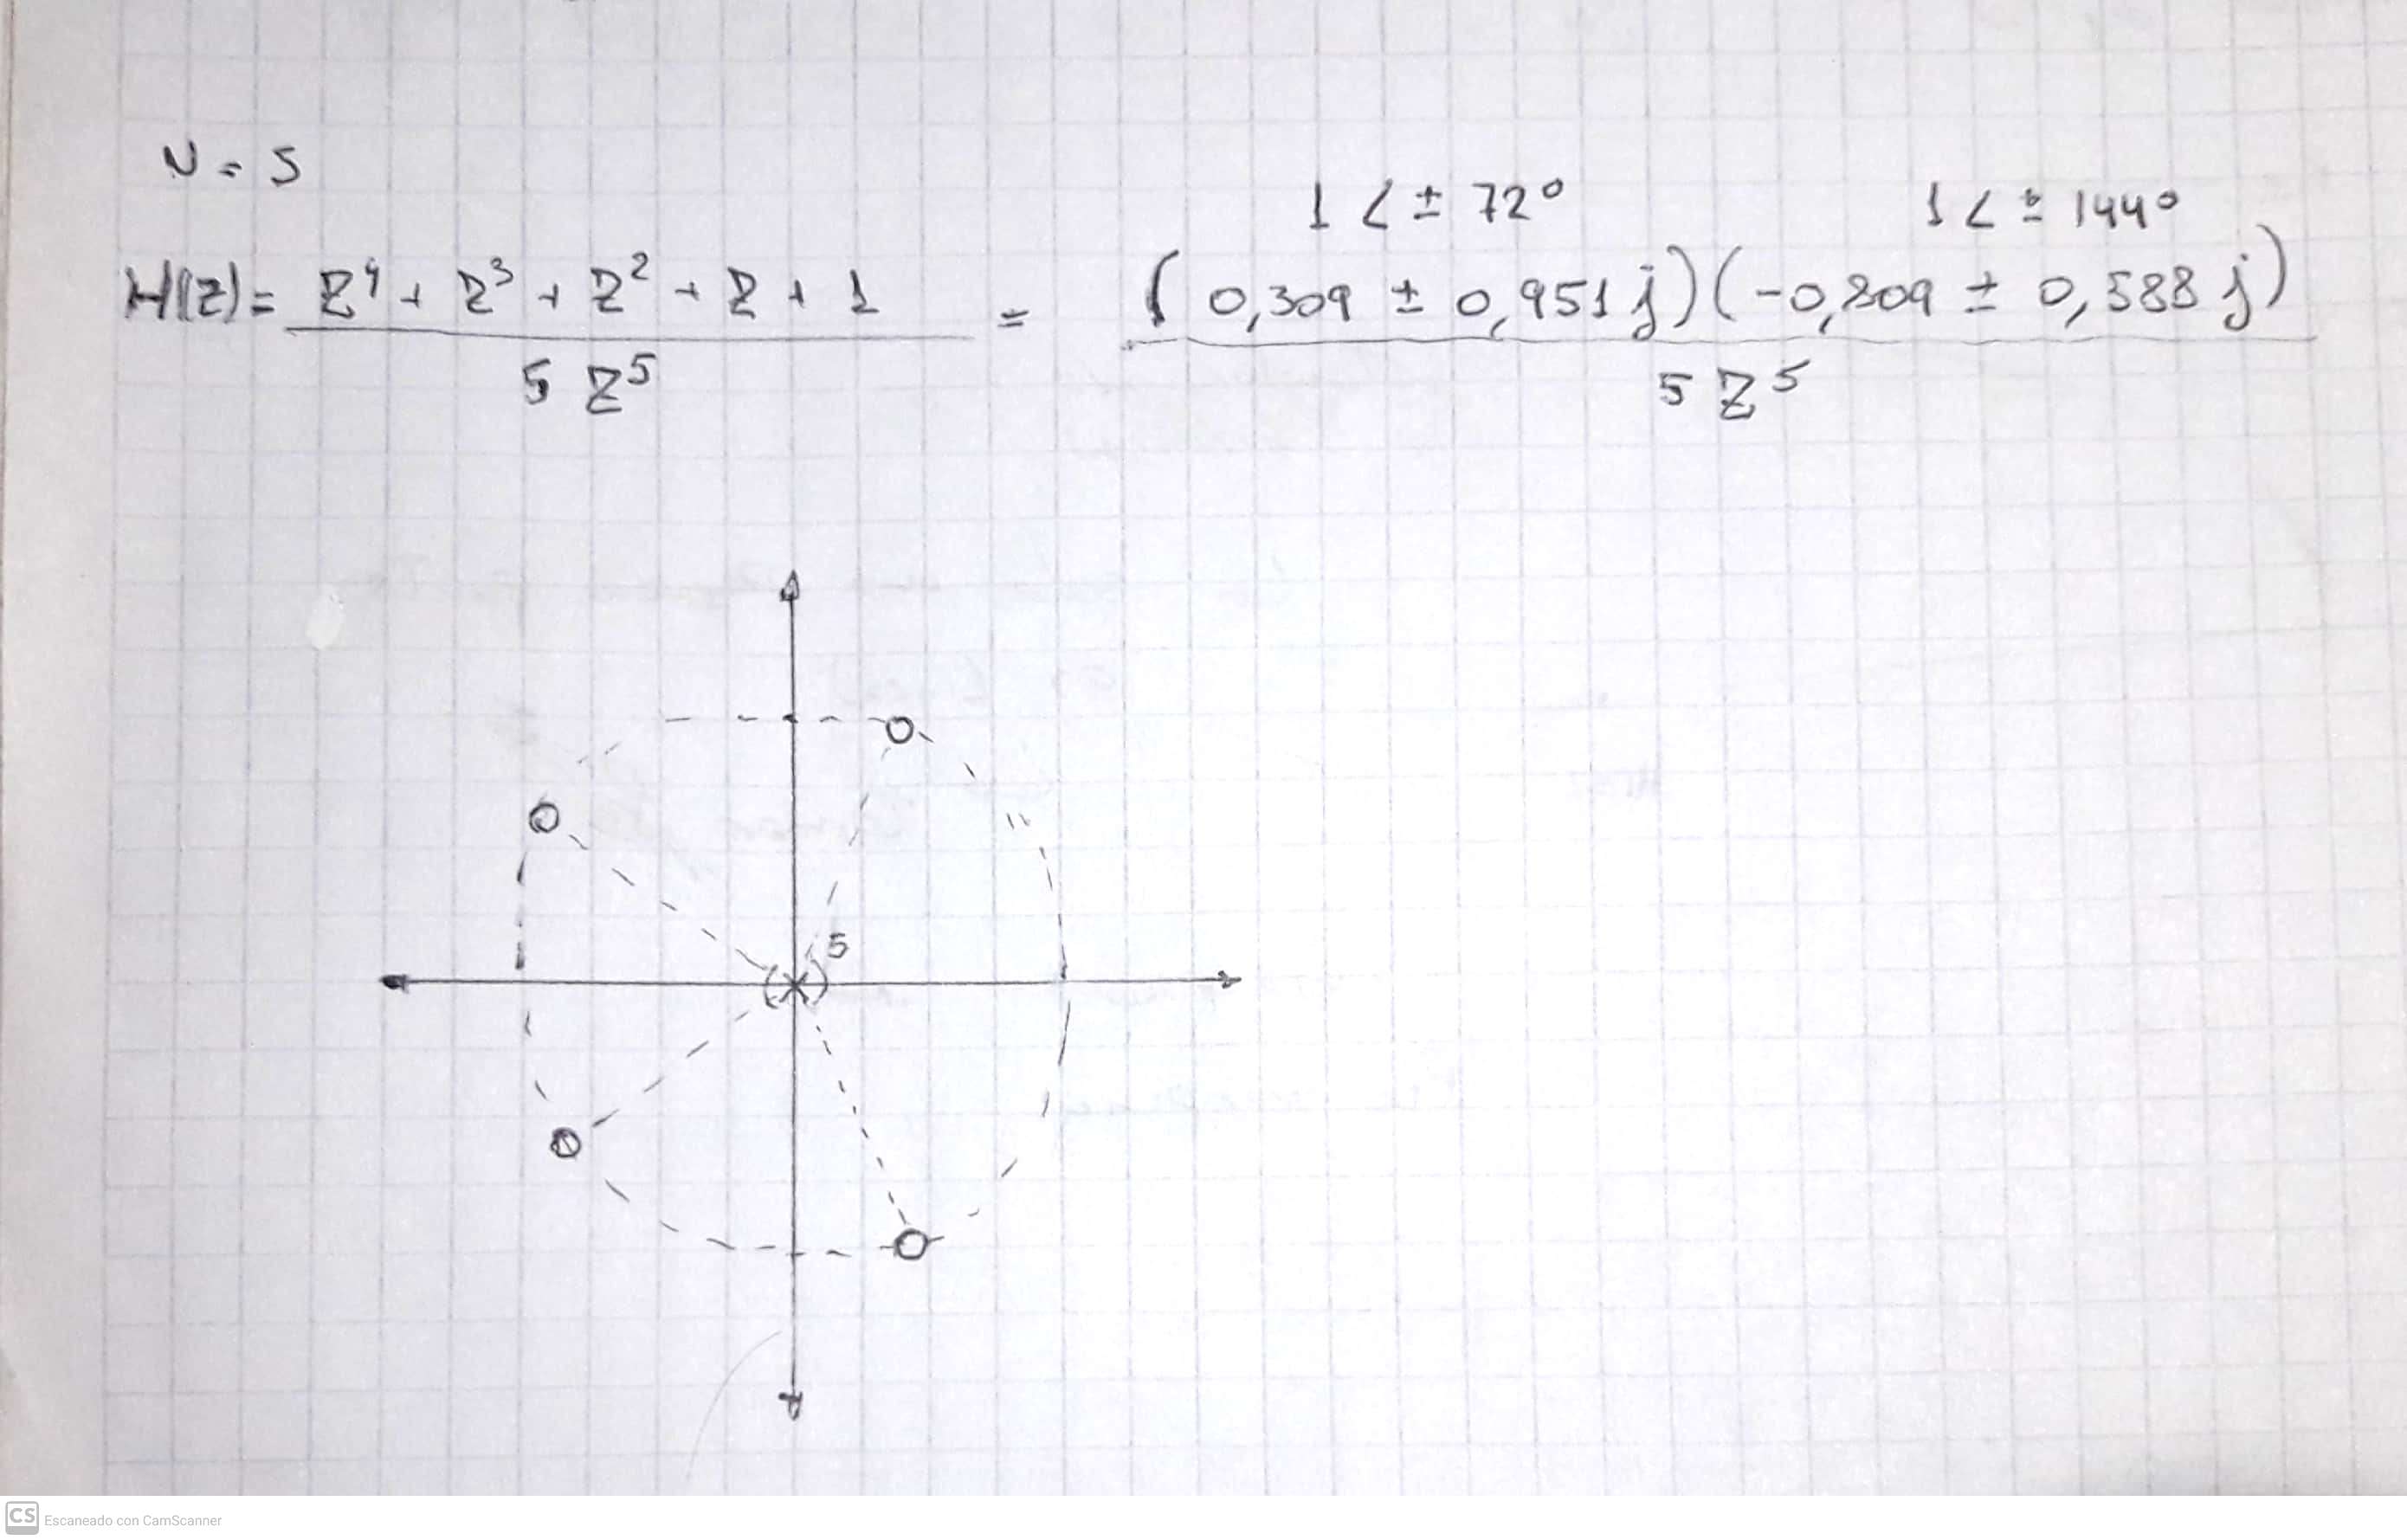 N = 5
1 ∠ ± 72° 1 ∠ ± 144°
H(z) = z⁴ + z³ + z² + z + 1 / 5 z⁵ = (0,309 ± 0,951 j)(-0,809 ± 0,588 j) / 5 z⁵
( )5
CS Escaneado con CamScanner